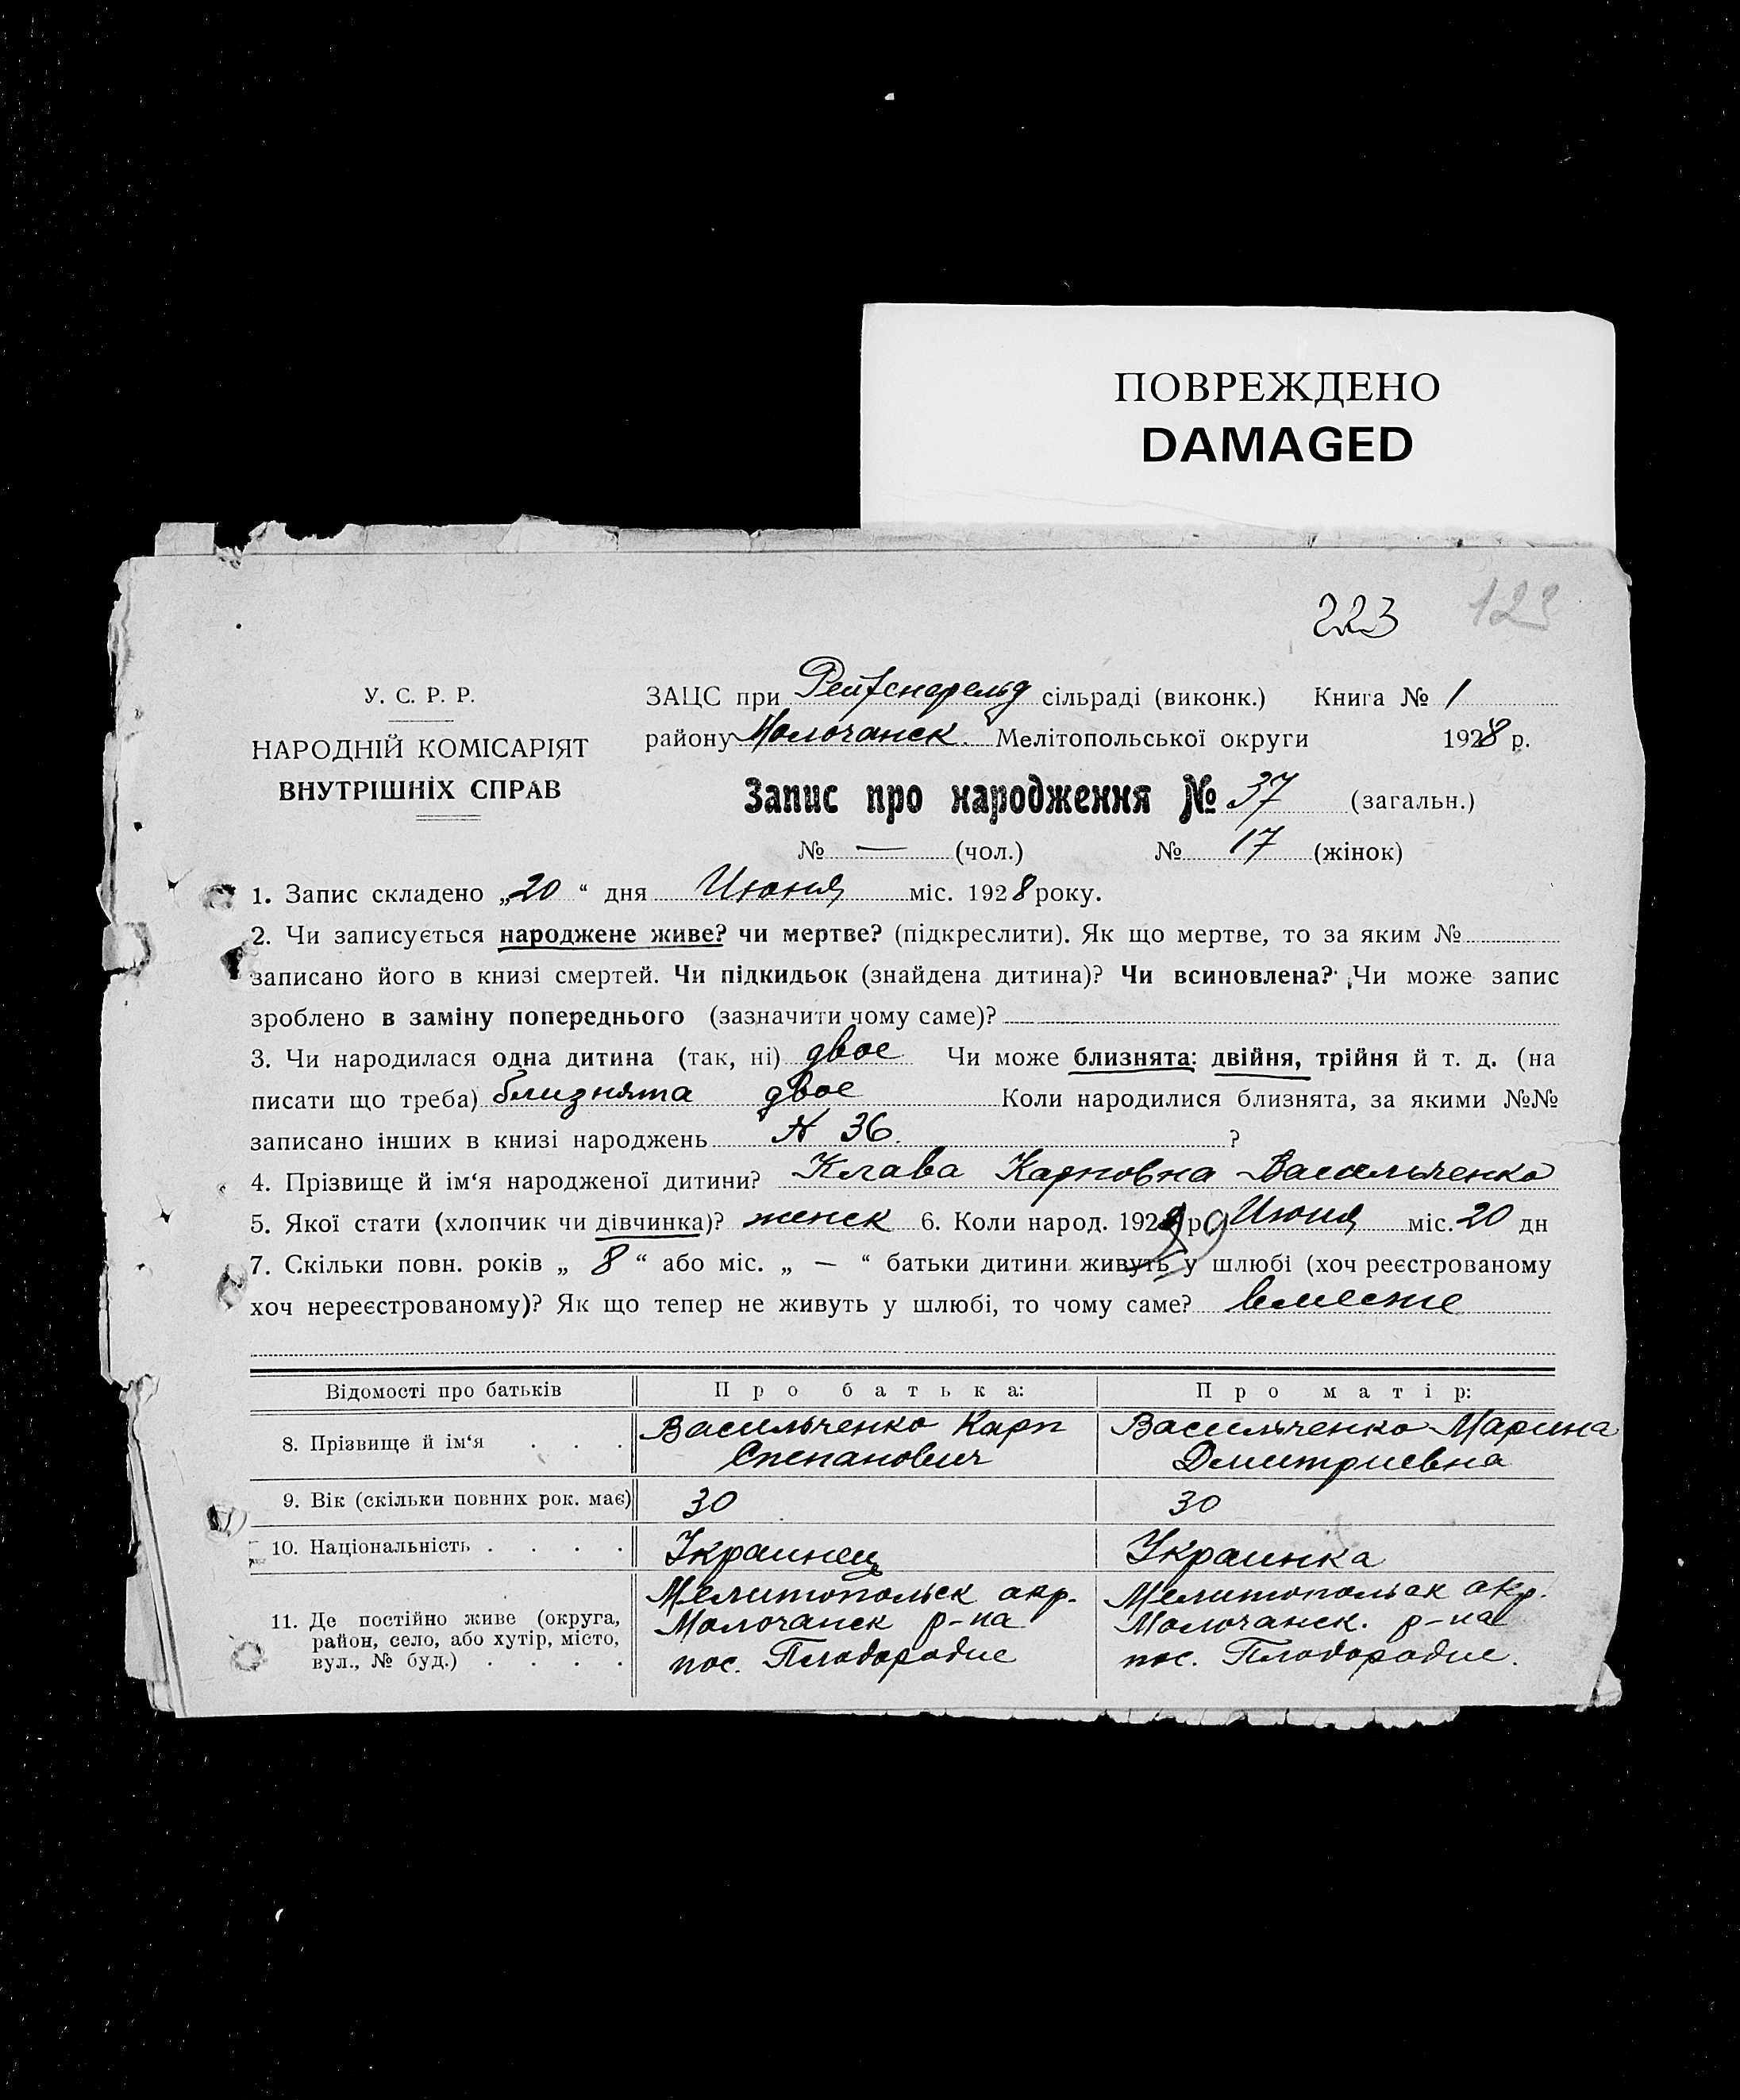 ПОВРЕЖДЕНО
DAMAGED
223 123
У. С. Р. Р.
НАРОДНІЙ КОМІСАРІЯТ
ВНУТРІШНІХ СПРАВ
ЗАЦС при сільраді (виконк.) Книга № 1
району Молочанск. Мелітопольської округи 1928 р.
Запис про народження № 37 (загальн.)
№ — (чол.) № 17 (жінок)
1. Запис складено „20“ дня Июня міс. 1928 року.
2. Чи записується народжене живе? чи мертве? (підкреслити). Як що мертве, то за яким №
записано його в книзі смертей. Чи підкидьок (знайдена дитина)? Чи всиновлена? Чи може запис
зроблено в заміну попереднього (зазначити чому саме)?
3. Чи народилася одна дитина (так, ні) двое Чи може близнята: двійня, трійня й т. д. (на
писати що треба) близнята двое Коли народилися близнята, за якими №№
записано інших в книзі народжень № 36. ?
4. Прізвище й ім‘я народженої дитини? Клава Карповна Васильченко
5. Якої стати (хлопчик чи дівчинка)? женск 6. Коли народ. 192 р. Июня міс. 20 дн
7. Скільки повн. років „ 8 “ або міс. „ — “ батьки дитини живуть у шлюбі (хоч реєстрованому
хоч нереєстрованому)? Як що тепер не живуть у шлюбі, то чому саме? вместе
Відомості про батьків Про батька: Про матір:
8. Прізвище й ім‘я . . . Васильченко Карп Степанович Васильченко Марина Дмитриевна
9. Вік (скільки повних рок. має) 30 30
10. Національність . . . . Украинец Украинка
11. Де постійно живе (округа, Мелитопольск окр. Мелитопольск окр.
район, село, або хутір, місто, Молочанск р-на Молочанск. р-на
вул., № буд.) . . . . пос. Плодородие пос. Плодородие.